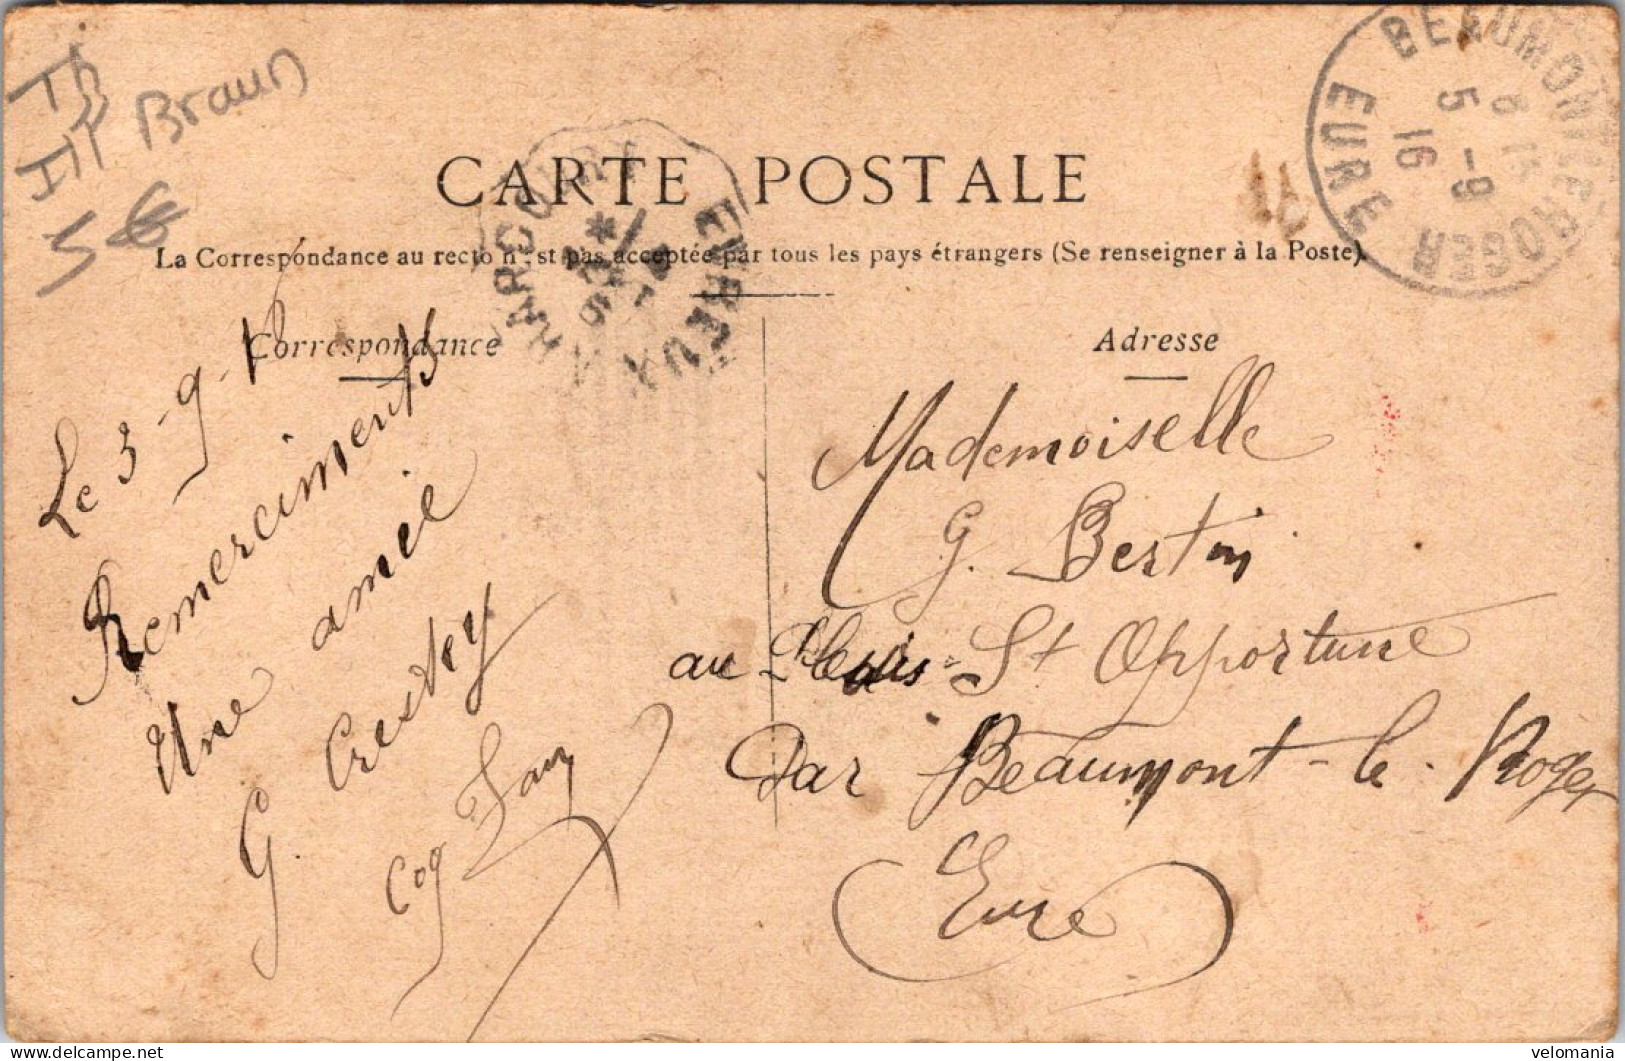 Braun
5€
CARTE POSTALE
La Correspondance au recto n'est pas acceptée par tous les pays étrangers (Se renseigner à la Poste).
Correspondance
Adresse
BEAUMONT LE ROGER
EURE
5 -9
16
HARCOURT
EVREUX
Le 3-9-
Remerciments
Une amie
G. Crestey
Mademoiselle
G. Bertin
au Plessis St Opportune
Par Beaumont-le-Roger
Eure
velomania